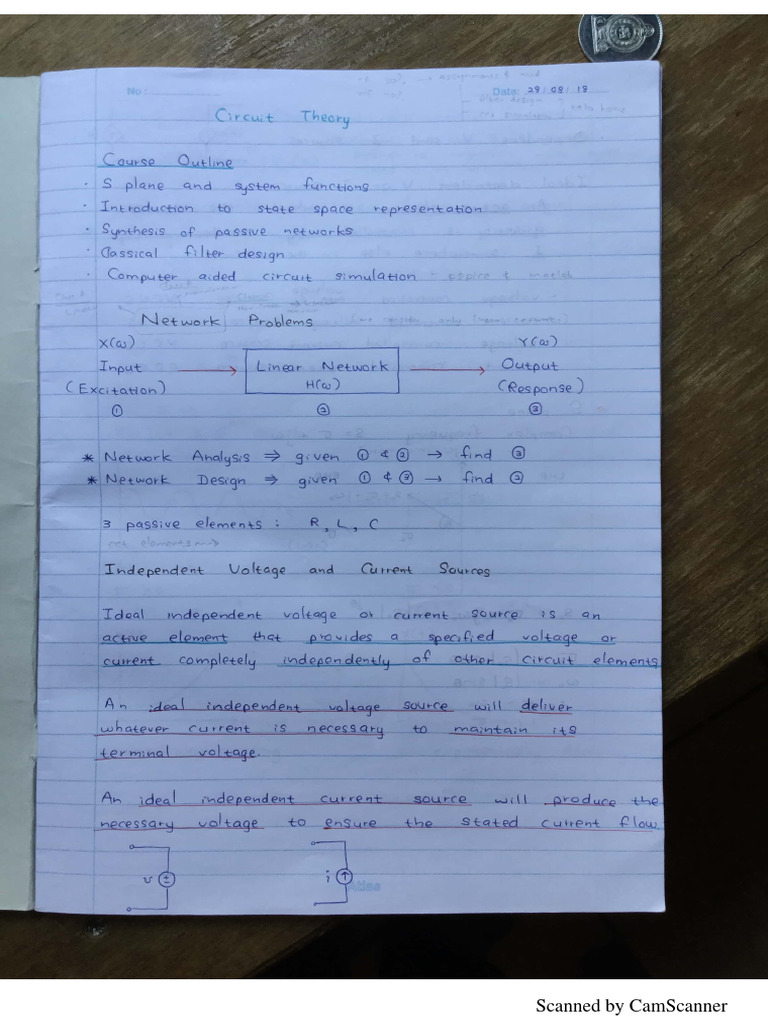 No: Date: 29/08/18
Circuit Theory
Course Outline
· S plane and system functions
· Introduction to state space representation
· Synthesis of passive networks
· Classical filter design
· Computer aided circuit simulation - pspice &
Network Problems
X(ω) Y(ω)
Input → Linear Network → Output
(Excitation) H(ω) (Response)
① ② ③
* Network Analysis ⇒ given ① & ② → find ③
* Network Design ⇒ given ① & ③ → find ②
3 passive elements : R, L, C
Independent Voltage and Current Sources
Ideal independent voltage or current source is an
active element that provides a specified voltage or
current completely independently of other circuit elements
An ideal independent voltage source will deliver
whatever current is necessary to maintain its
terminal voltage.
An ideal independent current source will produce the
necessary voltage to ensure the stated current flow.
v ± i ↑
Atlas
Scanned by CamScanner